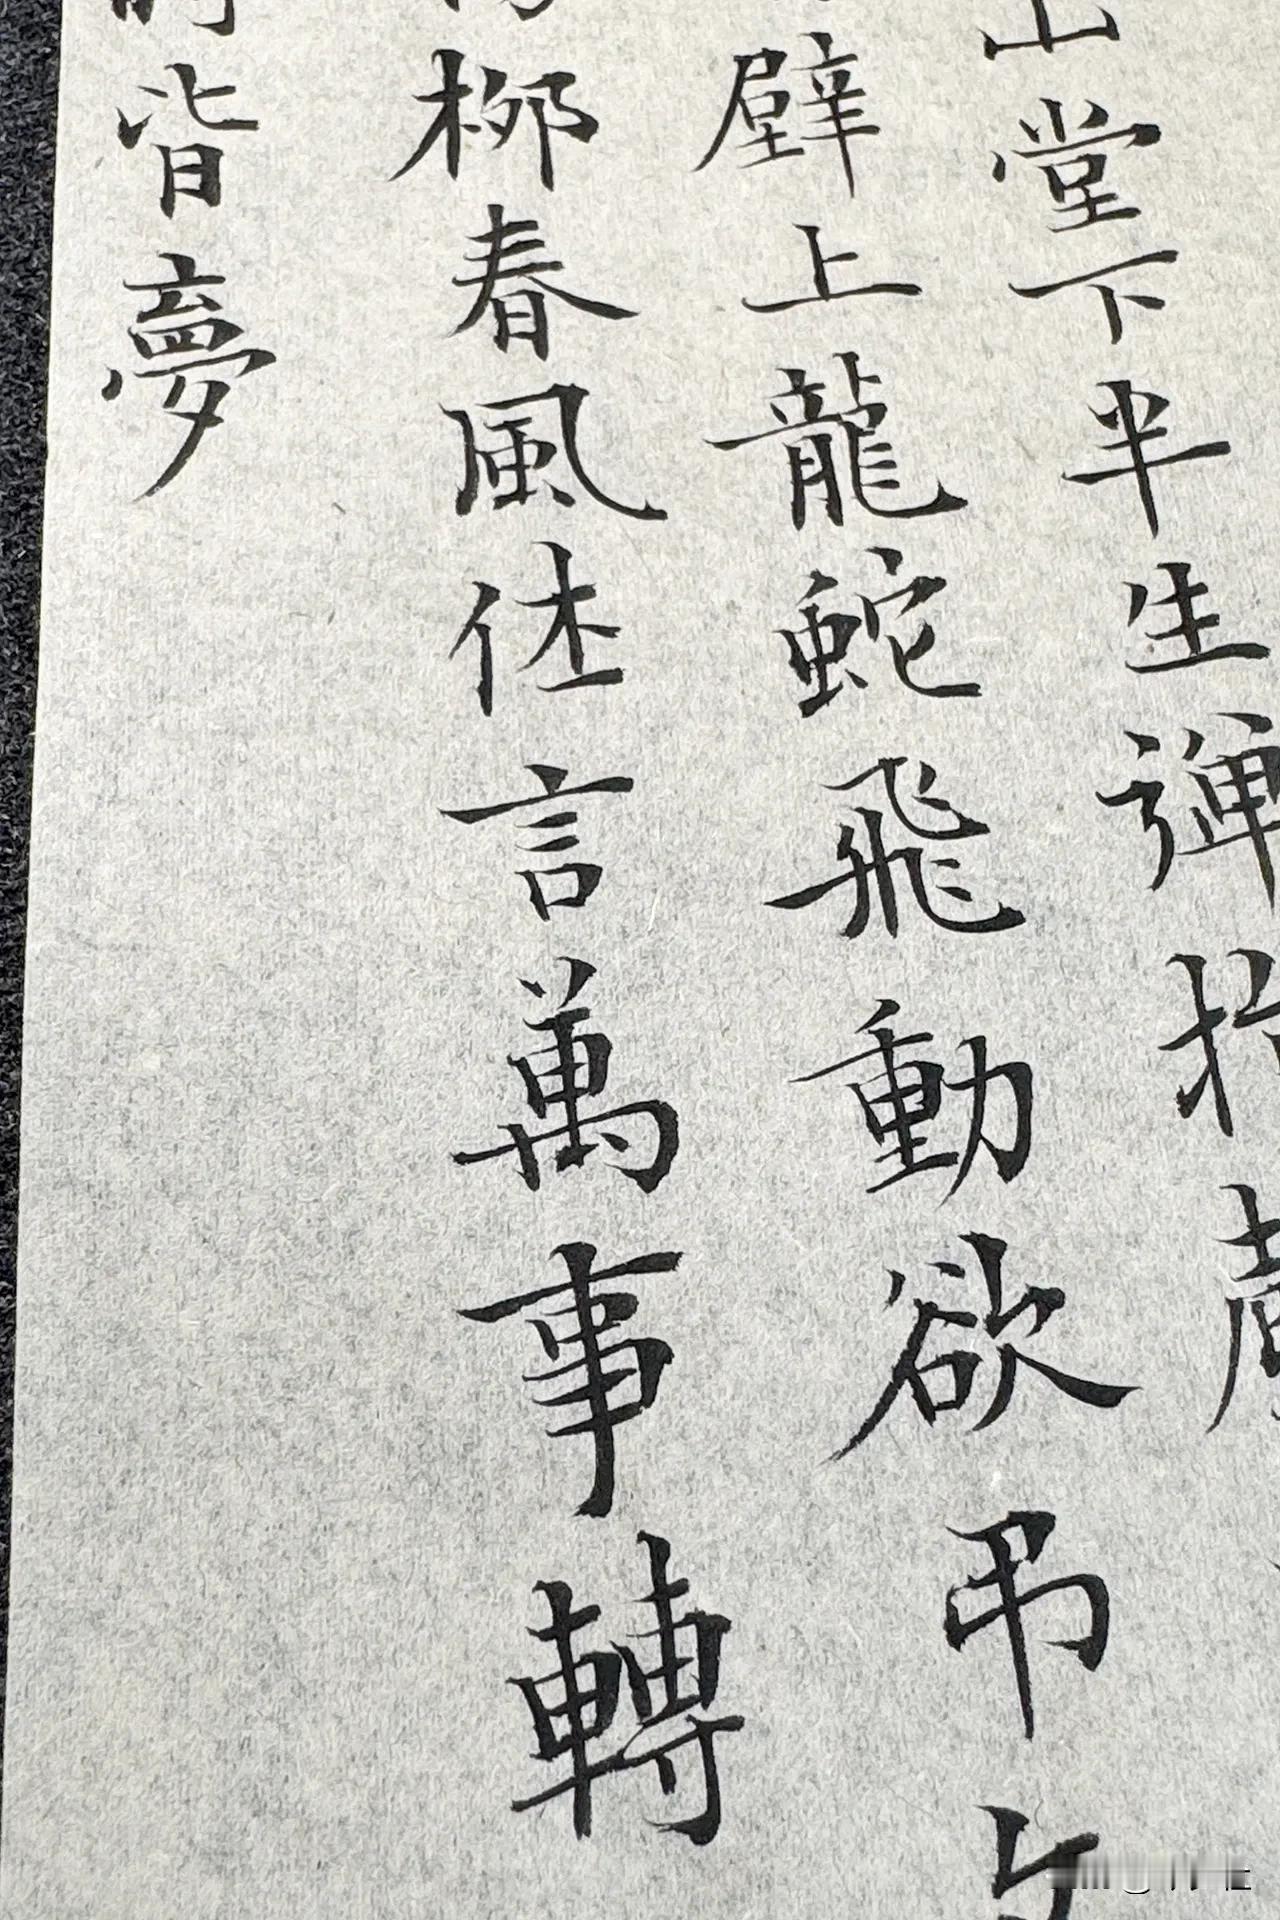 山堂下半生彈指聲
壁上龍蛇飛動欲吊
柳春風休言萬事轉
皆夢